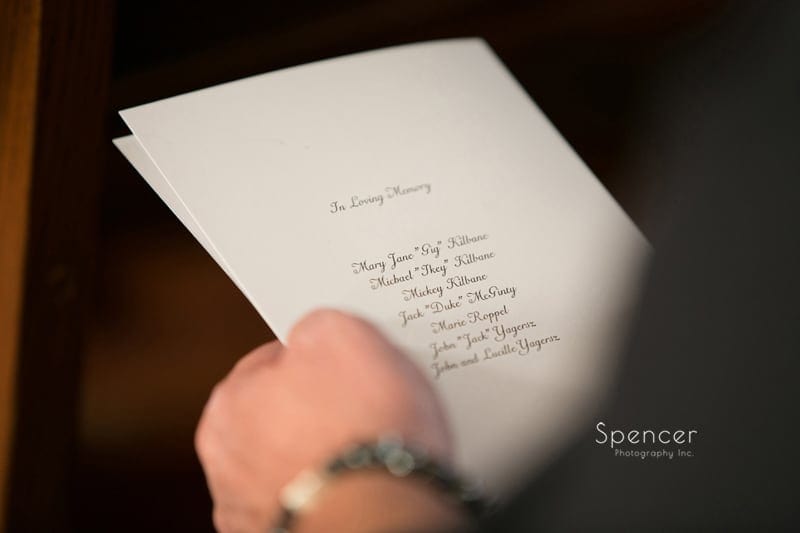 In Loving Memory
Mary Jane "Gig" Kilbane
Michael "Ikey" Kilbane
Mickey Kilbane
Jack "Duke" McGinty
Marie Roppel
John "Jack" Yagersz
John and Lucille Yagersz
Spencer
Photography Inc.